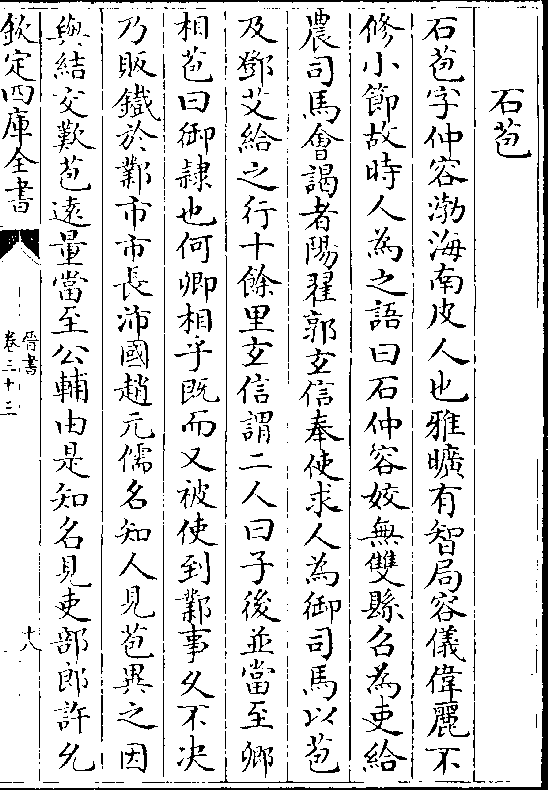 石苞
石苞字仲容渤海南皮人也雅曠有智局容儀偉麗不
修小節故時人為之語曰石仲容姣無雙縣召為吏給
農司馬會謁者陽翟郭玄信奉使求人為御司馬以苞
及鄧艾給之行十餘里玄信謂二人曰子後並當至卿
相苞曰御隸也何卿相乎既而又被使到鄴事久不决
乃販鐵於鄴市市長沛國趙元儒名知人見苞異之因
與結交歎苞遠量當至公輔由是知名見吏部郎許允
欽定四庫全書
晉書
卷三十三
十八